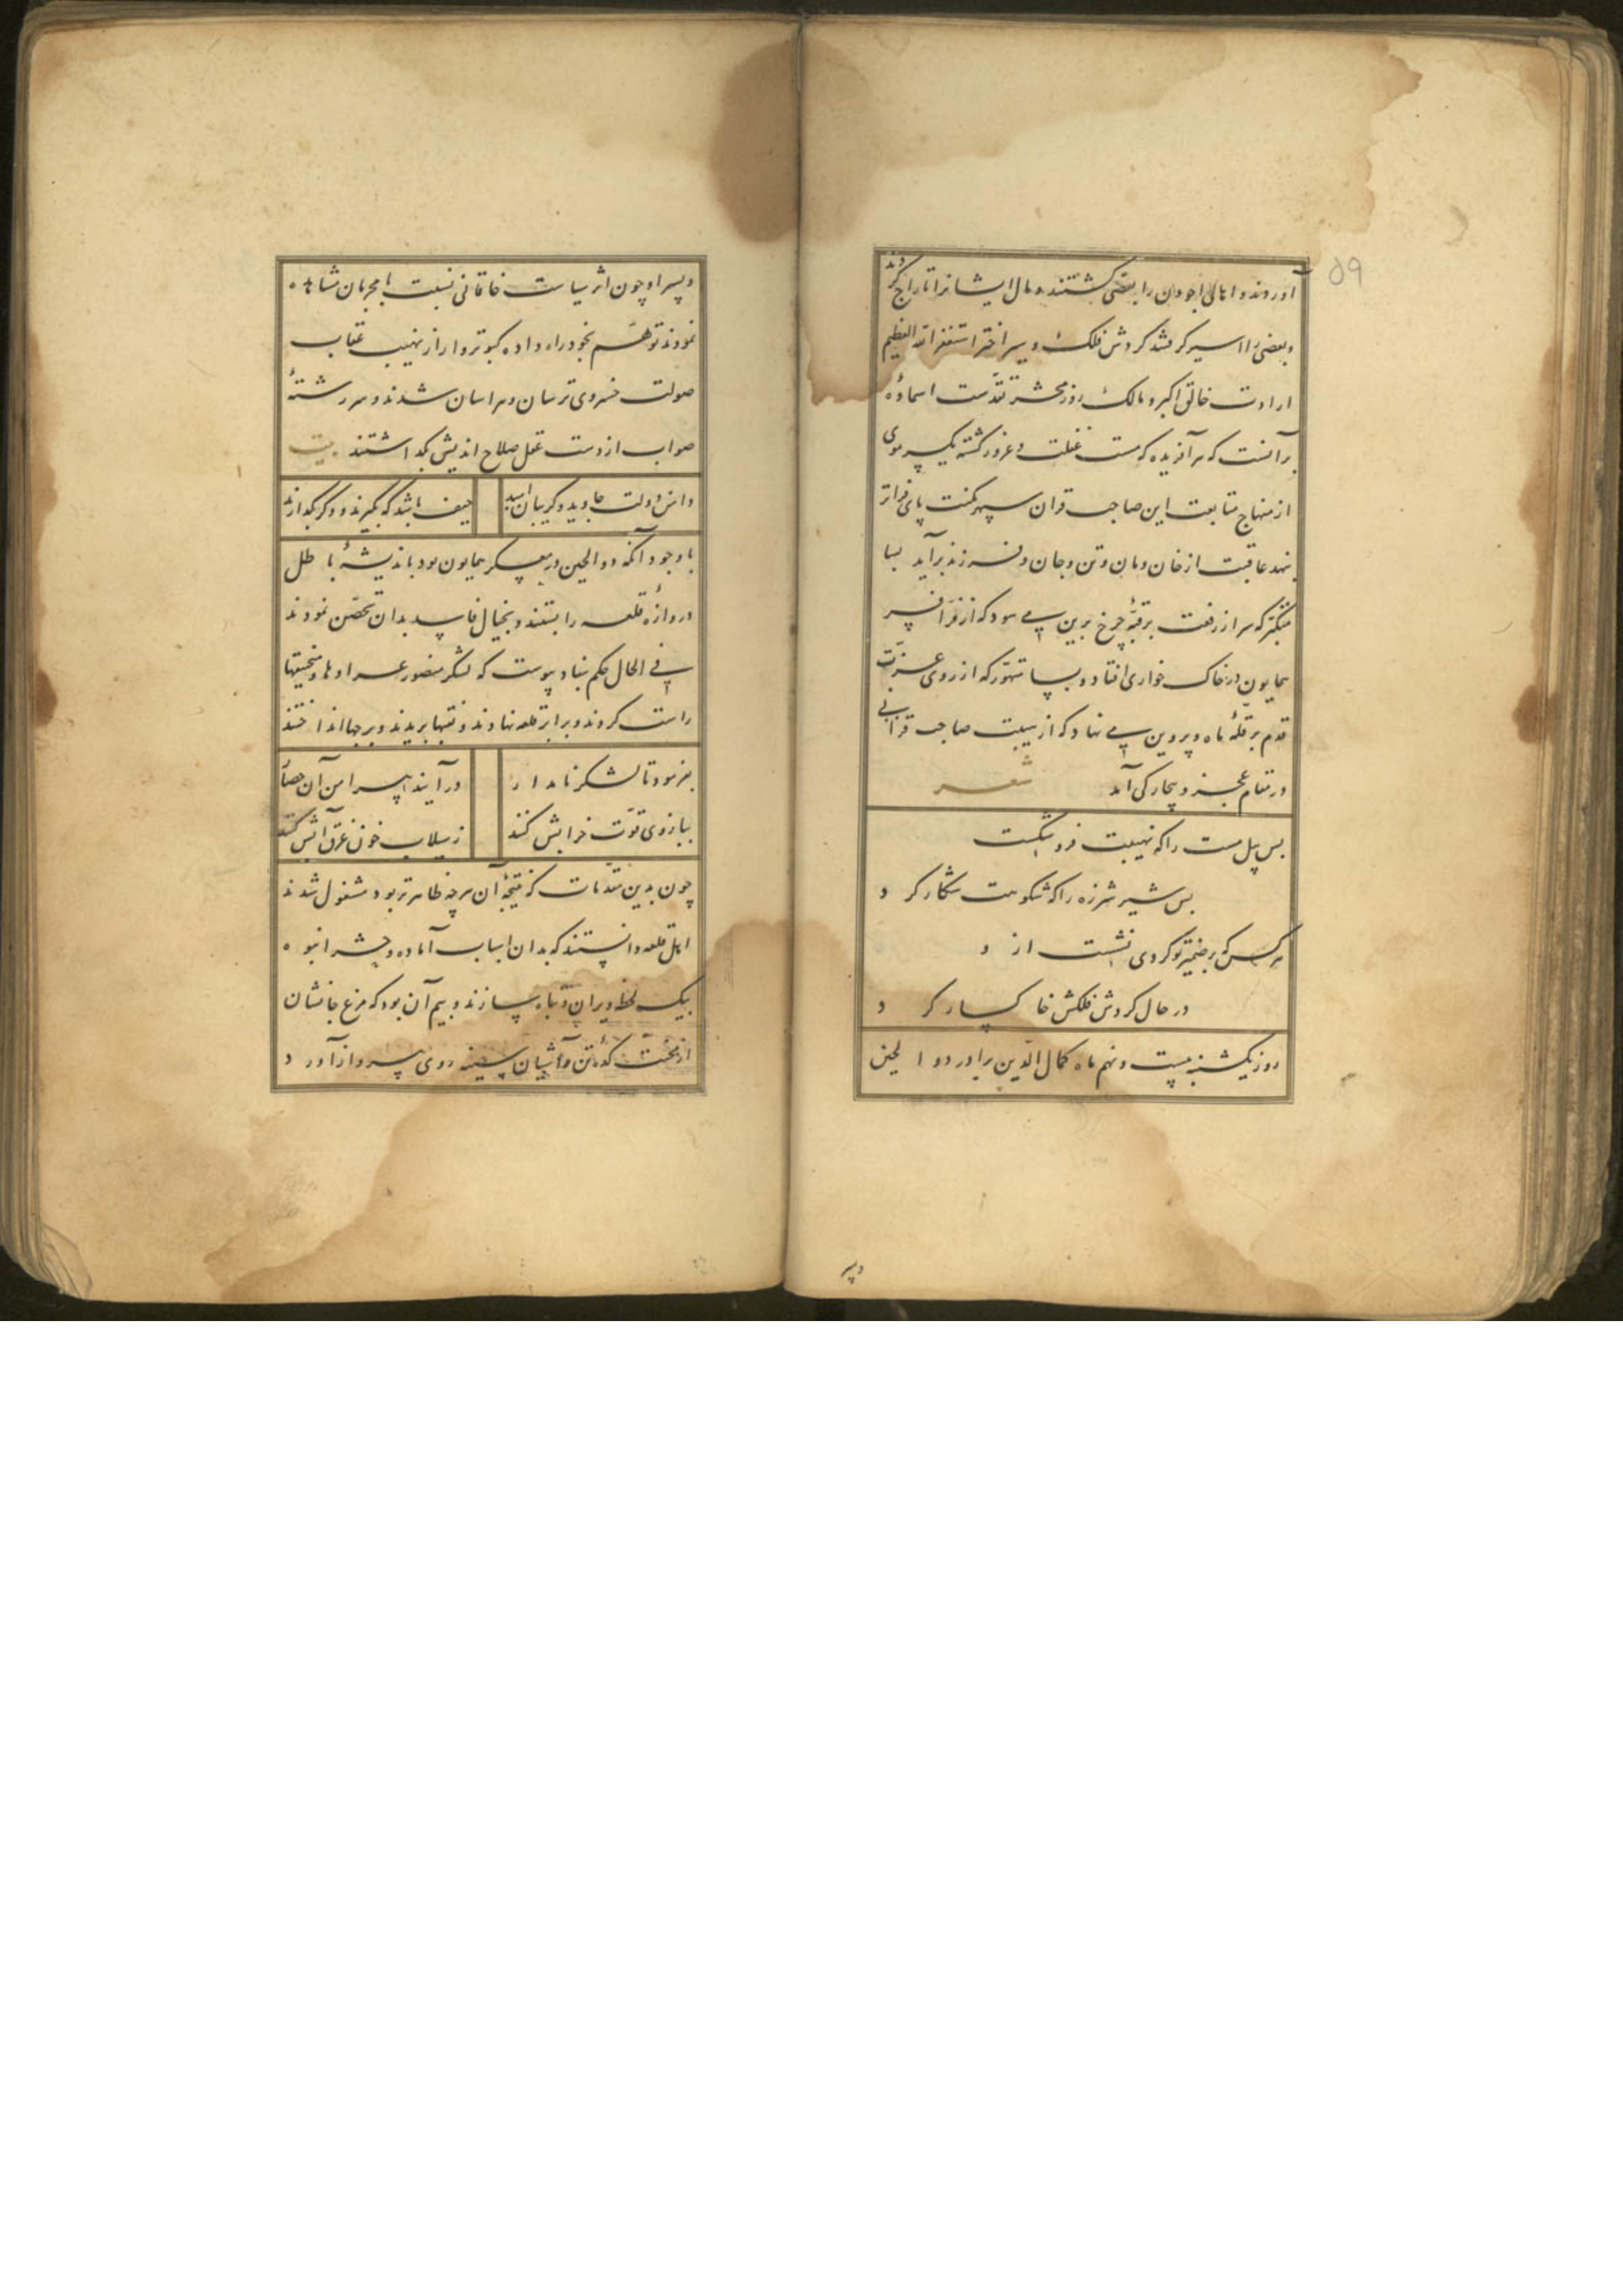 ۵۹
آوردند و اهالی اجودن را بعضی کشتند و مال ایشانرا تاراج کردند
و بعضی را اسیر گرفتند گردش فلک و سیر اختر استغفر الله العظیم
ارادت خالق اکبر و مالک روز محشر تقدست اسماؤه
بر آنست که هر آفریده که مست غفلت و غرور گشته یک سر موی
از منهاج متابعت این صاحب قران سپهر مکنت پای فراتر
نهد عاقبت از خان و مان و تن و جان و فرزند برآید بسا
متکبر که سر از رفعت بر قبهٔ چرخ برین می سود که از فرّ افسر
همایون در خاک خواری افتاد و بسا متهوّر که از روی عزّت
قدم بر قلهٔ ماه و پروین می نهاد که از هیبت صاحب قرانی
در مقام عجز و بیچارگی آمد شعر
بس پیل مست را که نهیبت فرو شکست
بس شیر شرزه را که شکوهت شکار کرد
هر کس که بر ضمیر تو گردی نشست از و
در حال گردش فلکش خاکسار کرد
روز یکشنبه بیست و نهم ماه کمال الدین برادر دو الحین
و پسر
و پسر او چون اثر سیاست خاقانی نسبت با مجرمان مشاهده
نمودند توهّم بخود راه داده کبوتروار از نهیب عقاب
صولت خسروی ترسان و هراسان شدند و سر رشتهٔ
صواب از دست عقل صلاح اندیش بگذاشتند بیت
دامن دولت جاوید و گریبان امید حیف باشد که بگیرند و دگر بگذارند
با وجود آنکه دو الحین در معسکر همایون بود باندیشهٔ باطل
دروازهٔ قلعه را بستند و بخیال فاسد بدان تحصّن نمودند
فی الحال حکم بنفاد پیوست که لشکر منصور عرادها و منجنیقها
راست کردند و برابر قلعه نهادند و نقبها بریدند و برجها انداختند
بفرمود تا لشکر نامدار درآیند پیرامن آن حصار
ببازوی قوّت خرابش کنند ز سیلاب خون غرق آبش کنند
چون بدین مقدّمات که نتیجهٔ آن هرچه ظاهرتر بود مشغول شدند
اهل قلعه دانستند که بدان اسباب آماده و حشر انبوه
بیک لحظه ویران و تباه سازند و بیم آن بود که مرغ جانشان
از محنت کدهٔ تن و آشیان سینه روی بپرواز آورد